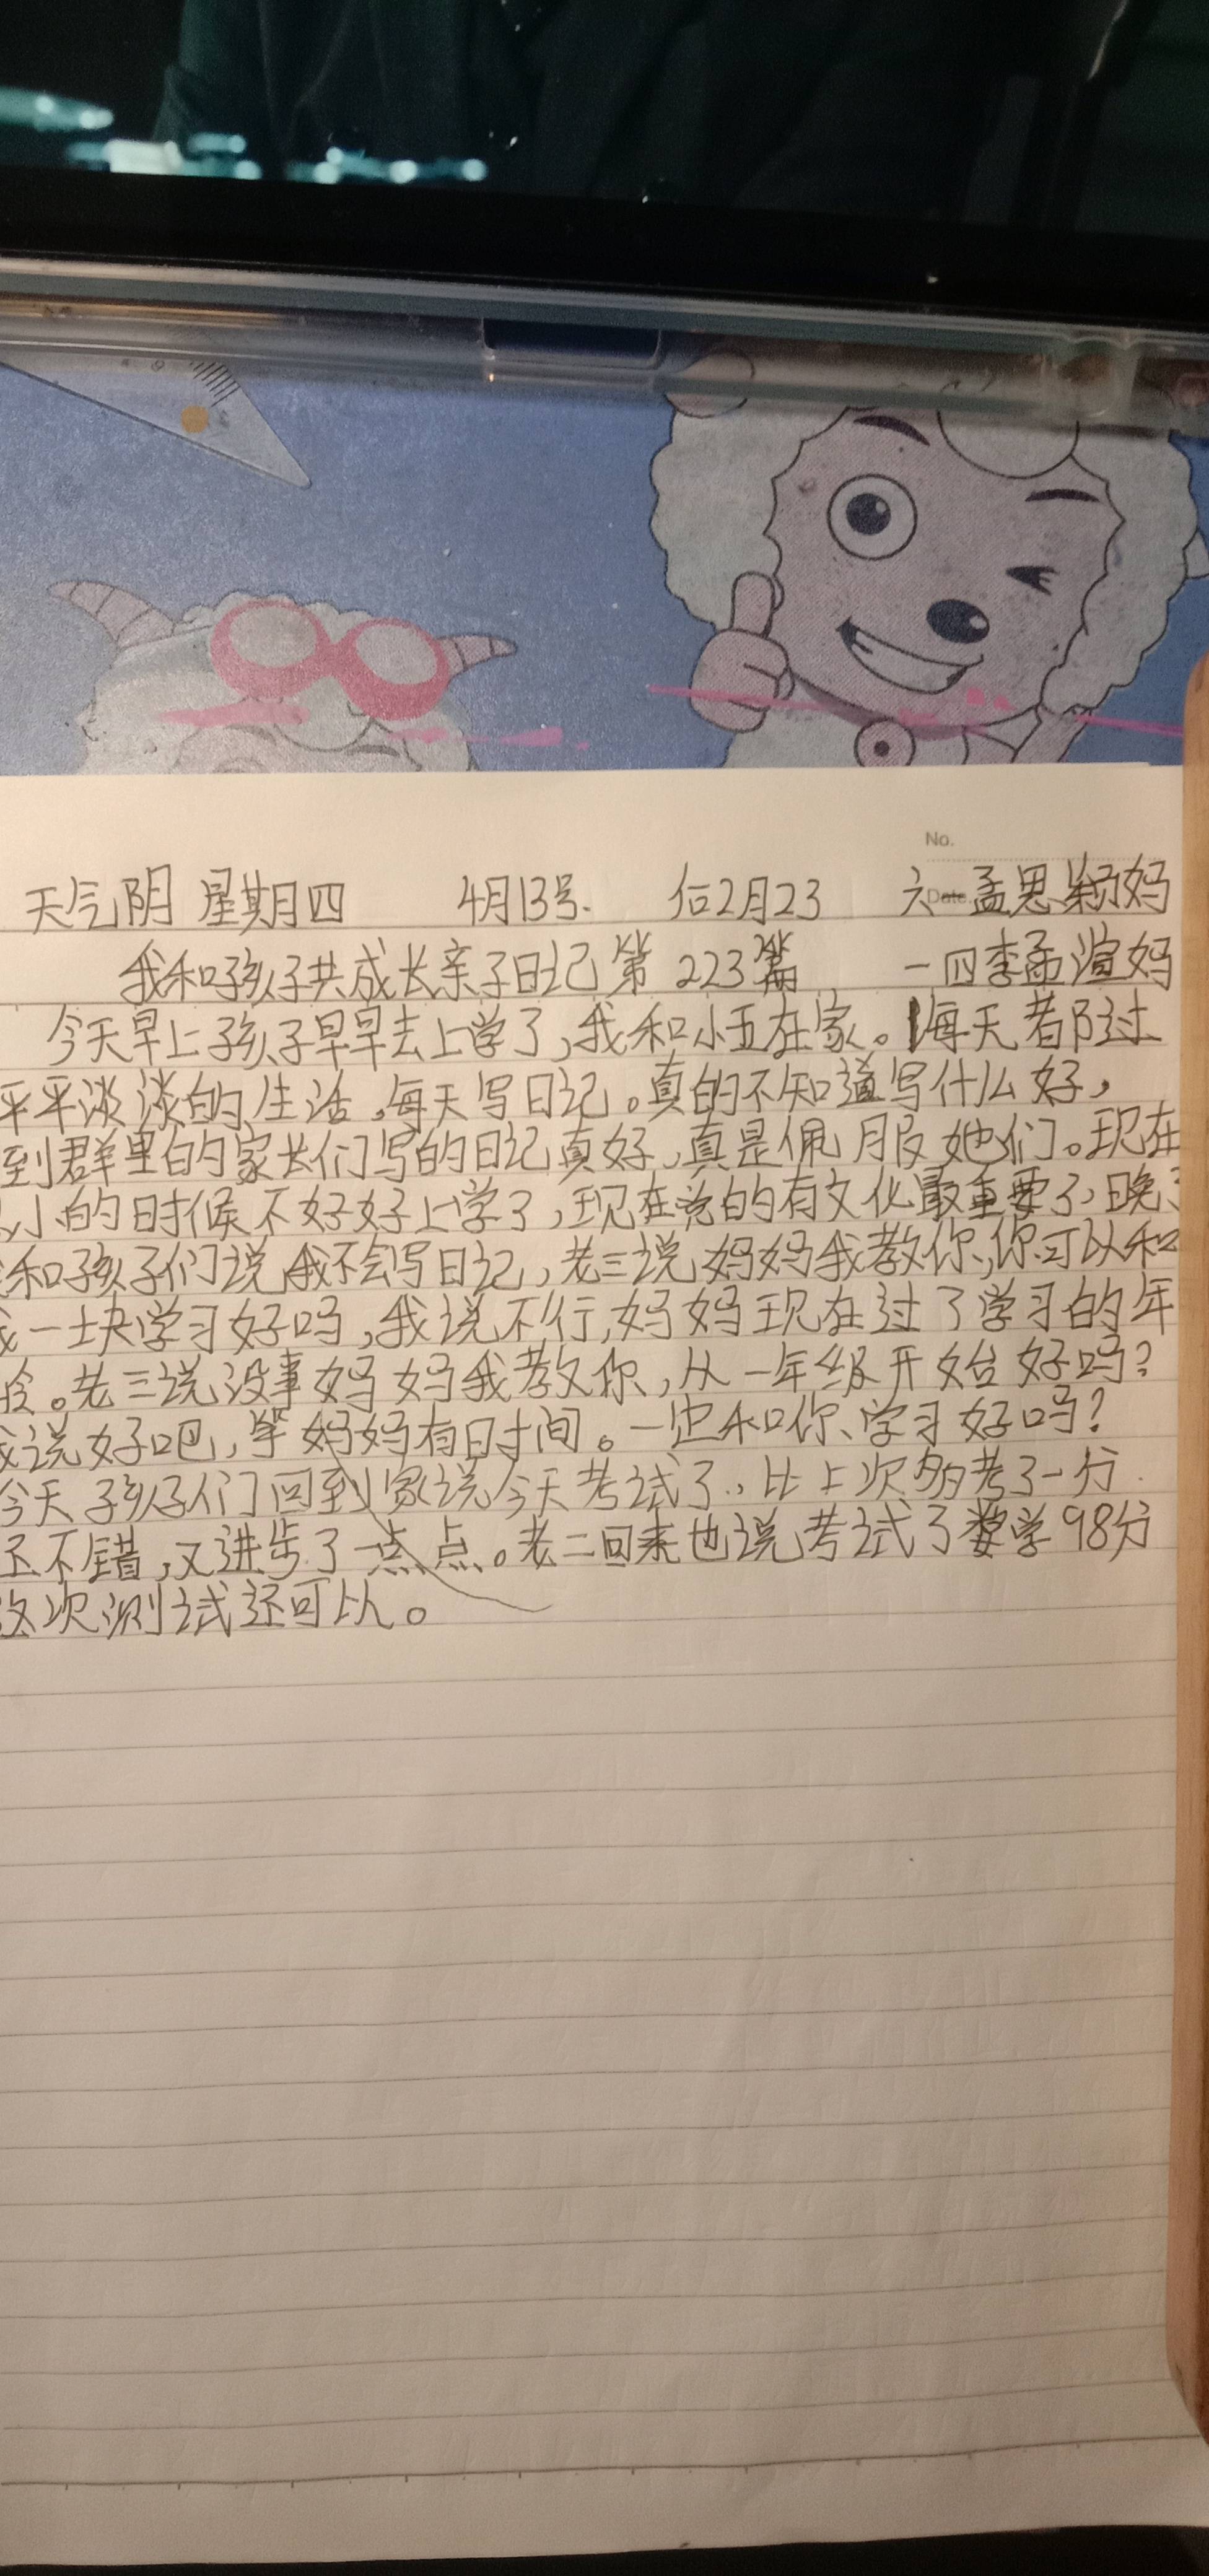 No.
Date
天气阴 星期四 4月13号. 后2月23 六 孟思颖妈
我和孩子共成长亲子日记第223篇 一四李孟渲妈
今天早上孩子早早去上学了,我和小五在家。每天都过
平平淡淡的生活,每天写日记。真的不知道写什么好,
到群里的家长们写的日记真好,真是佩服她们。现在
小的时候不好好上学了,现在觉的有文化最重要了,晚
和孩子们说我不会写日记,老三说妈妈我教你,你可以和
我一块学习好吗,我说不行,妈妈现在过了学习的年
龄。老三说没事妈妈我教你,从一年级开始好吗?
我说好吧,等妈妈有时间。一定和你学习好吗?
今天孩子们回到家说今天考试了,比上次多考了一分
还不错,又进步了一点点。老二回来也说考试了数学98分
这次测试还可以。